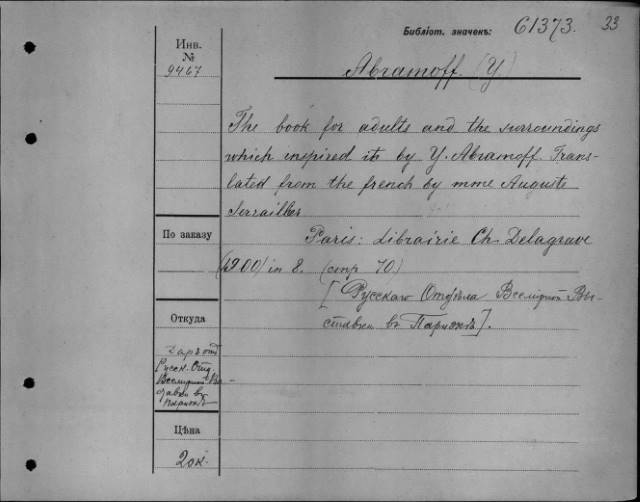 Библіот. значекъ: 61373. 33
Инв.
№
9467
Abramoff. (Y.)
The book for adults and the surroundings
which inspired it by Y. Abramoff. Trans-
lated from the french by mme Auguste
Serrailler
Paris: Librairie Ch. Delagrave
(1900) in 8. (стр 70)
[Русскаго Отдѣла Всемірной Вы-
ставки въ Парижѣ].
По заказу
Откуда
Даръ отъ
Русск. Отд.
Всемірной Вы-
ставки въ
Парижѣ
Цѣна
20к.